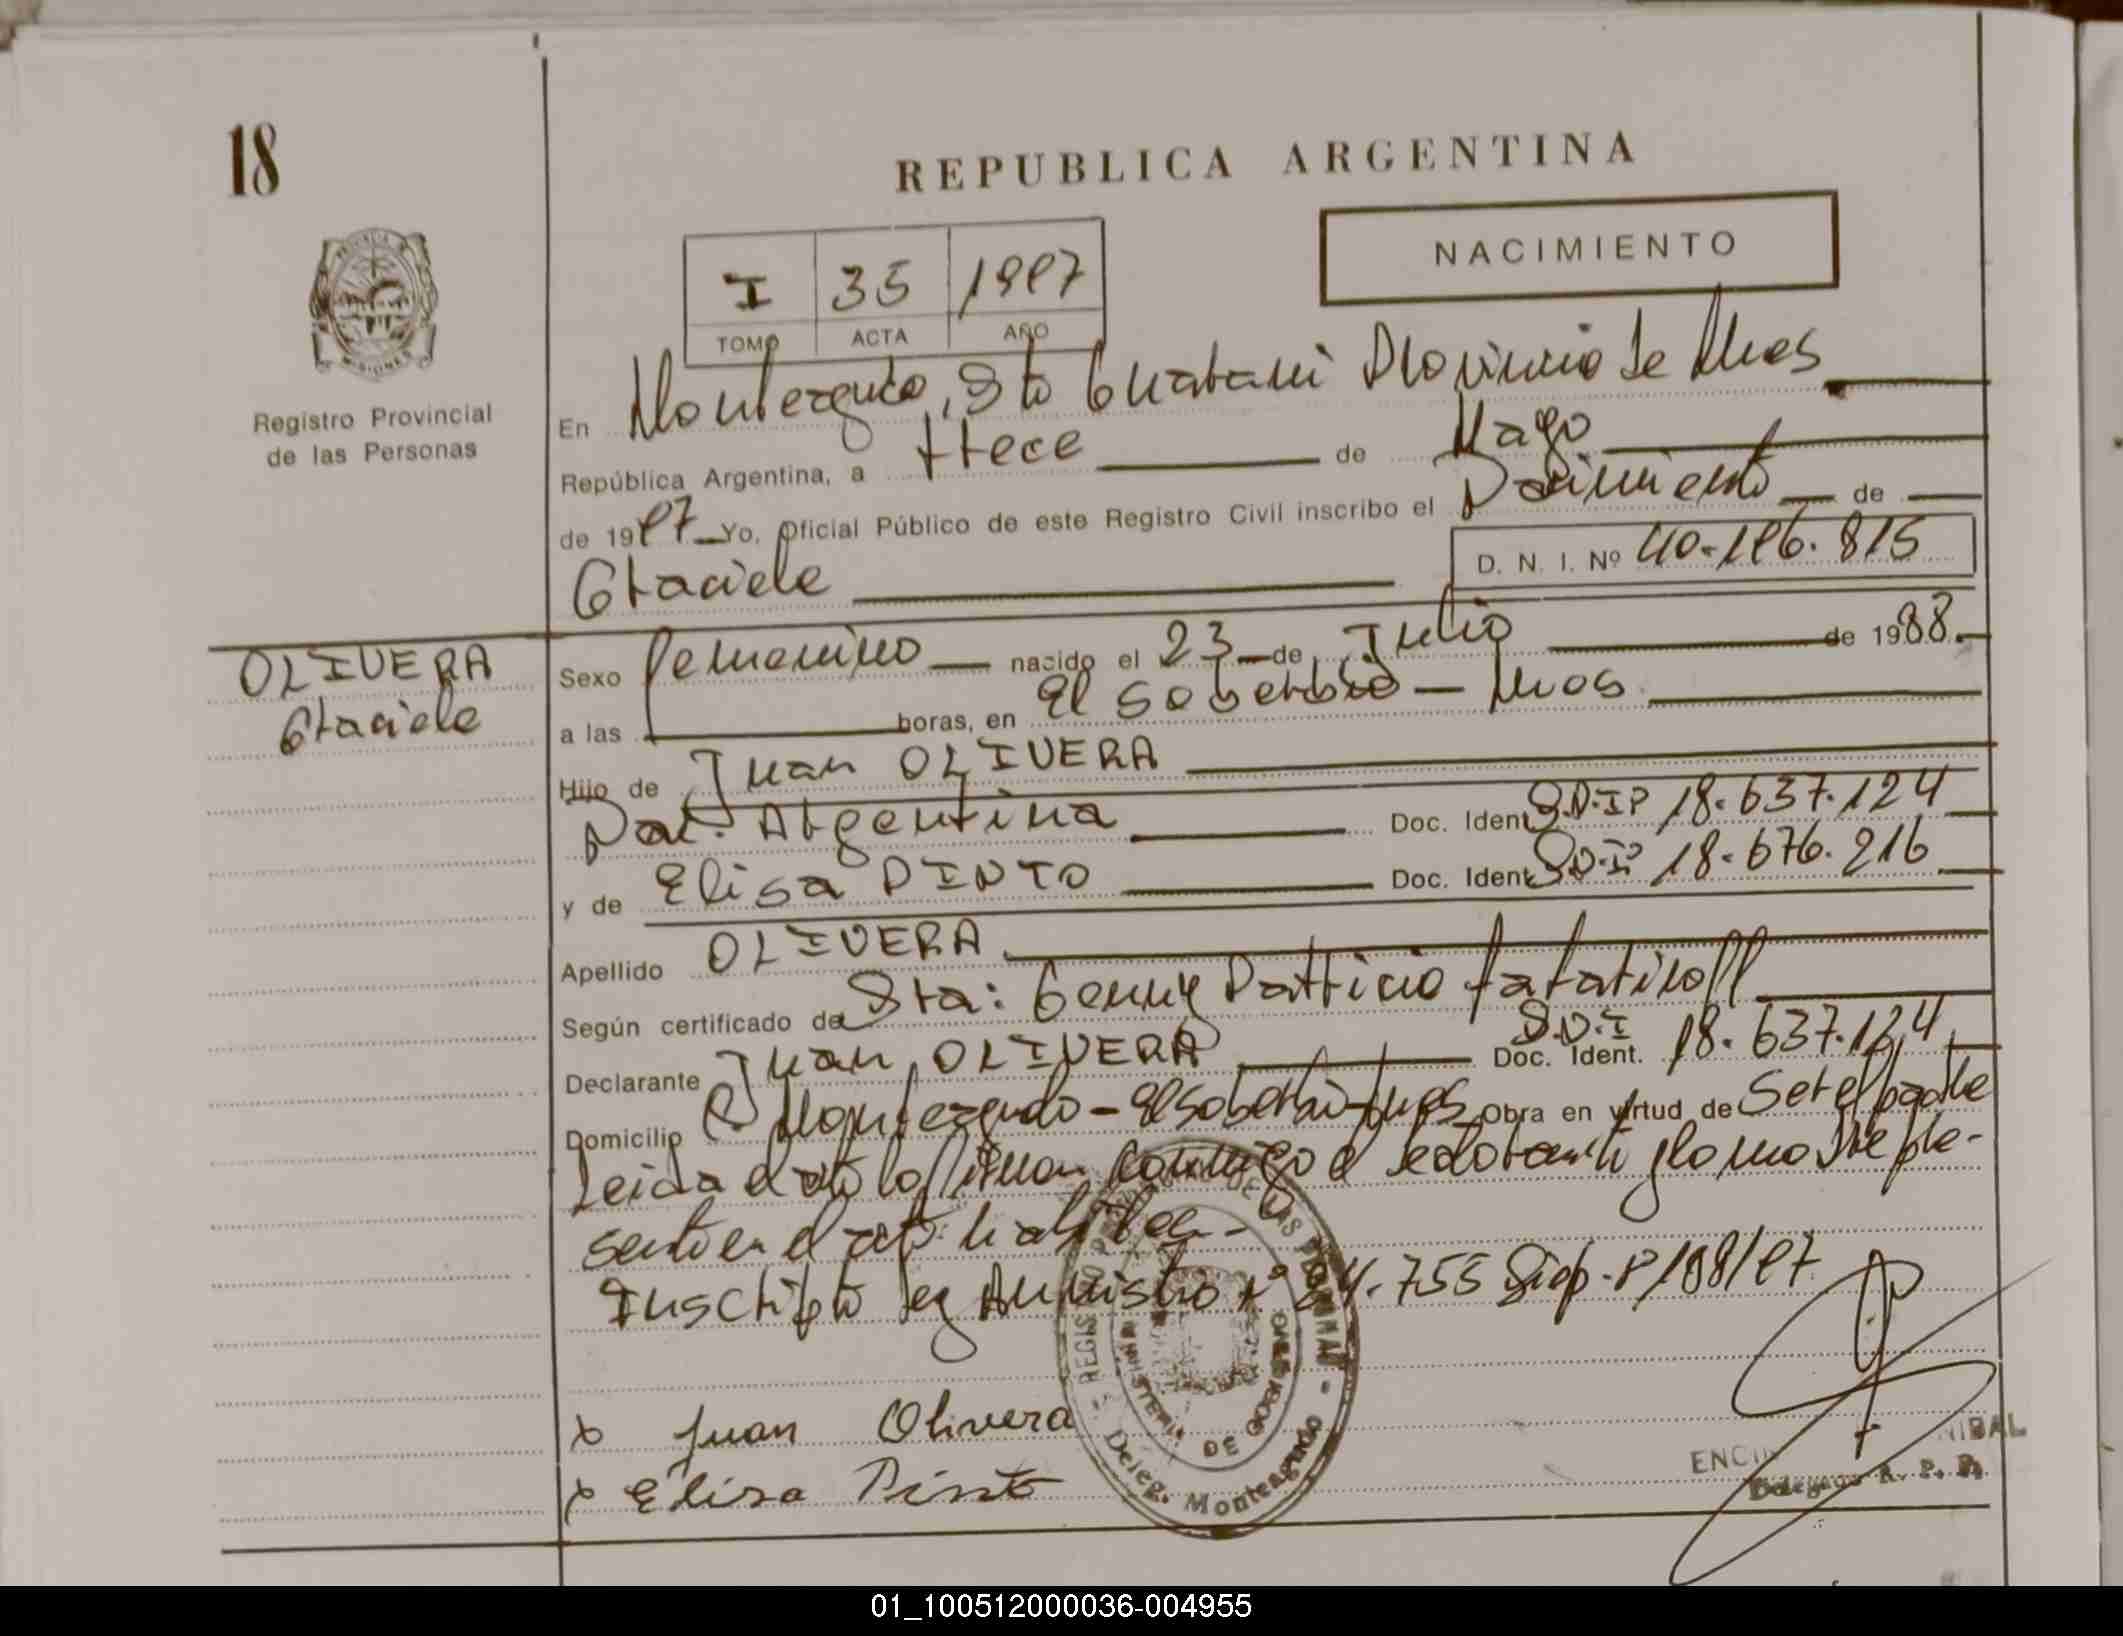 18
REPUBLICA ARGENTINA
I 35 1997
TOMO ACTA AÑO
NACIMIENTO
PROVINCIA DE MISIONES
Registro Provincial
de las Personas
En Monteagudo, Gto Guarani Provincia de Mnes
República Argentina, a trece de Mayo
de 1997 Yo, Oficial Público de este Registro Civil inscribo el Nacimiento de
Graciela
D. N. I. Nº 40.196.815
OLIVERA
Graciela
Sexo Femenino nacido el 23 de Julio de 1988
a las horas, en El Soberbio - Mnes
Hijo de Juan OLIVERA
Nac. Argentina Doc. Ident. 18.637.124
y de Elisa PINTO Doc. Ident. 18.676.216
Apellido OLIVERA
Según certificado de Sra: Genny Patricio
Declarante Juan OLIVERA Doc. Ident. 18.637.124
Domicilio Monteagudo - El Soberbio - Mnes Obra en virtud de Ser el padre
Leida el acta la firman conmigo el declarante y la madre pre-
sente en el acto
Inscripto Administ 755 P/198/97
REGISTRO PROVINCIAL DE LAS PERSONAS
MINISTERIO DE GOBIERNO
Deleg. Monteagudo
x Juan Olivera
x Elisa Pinto
Delegado R. P. P.
01_100512000036-004955